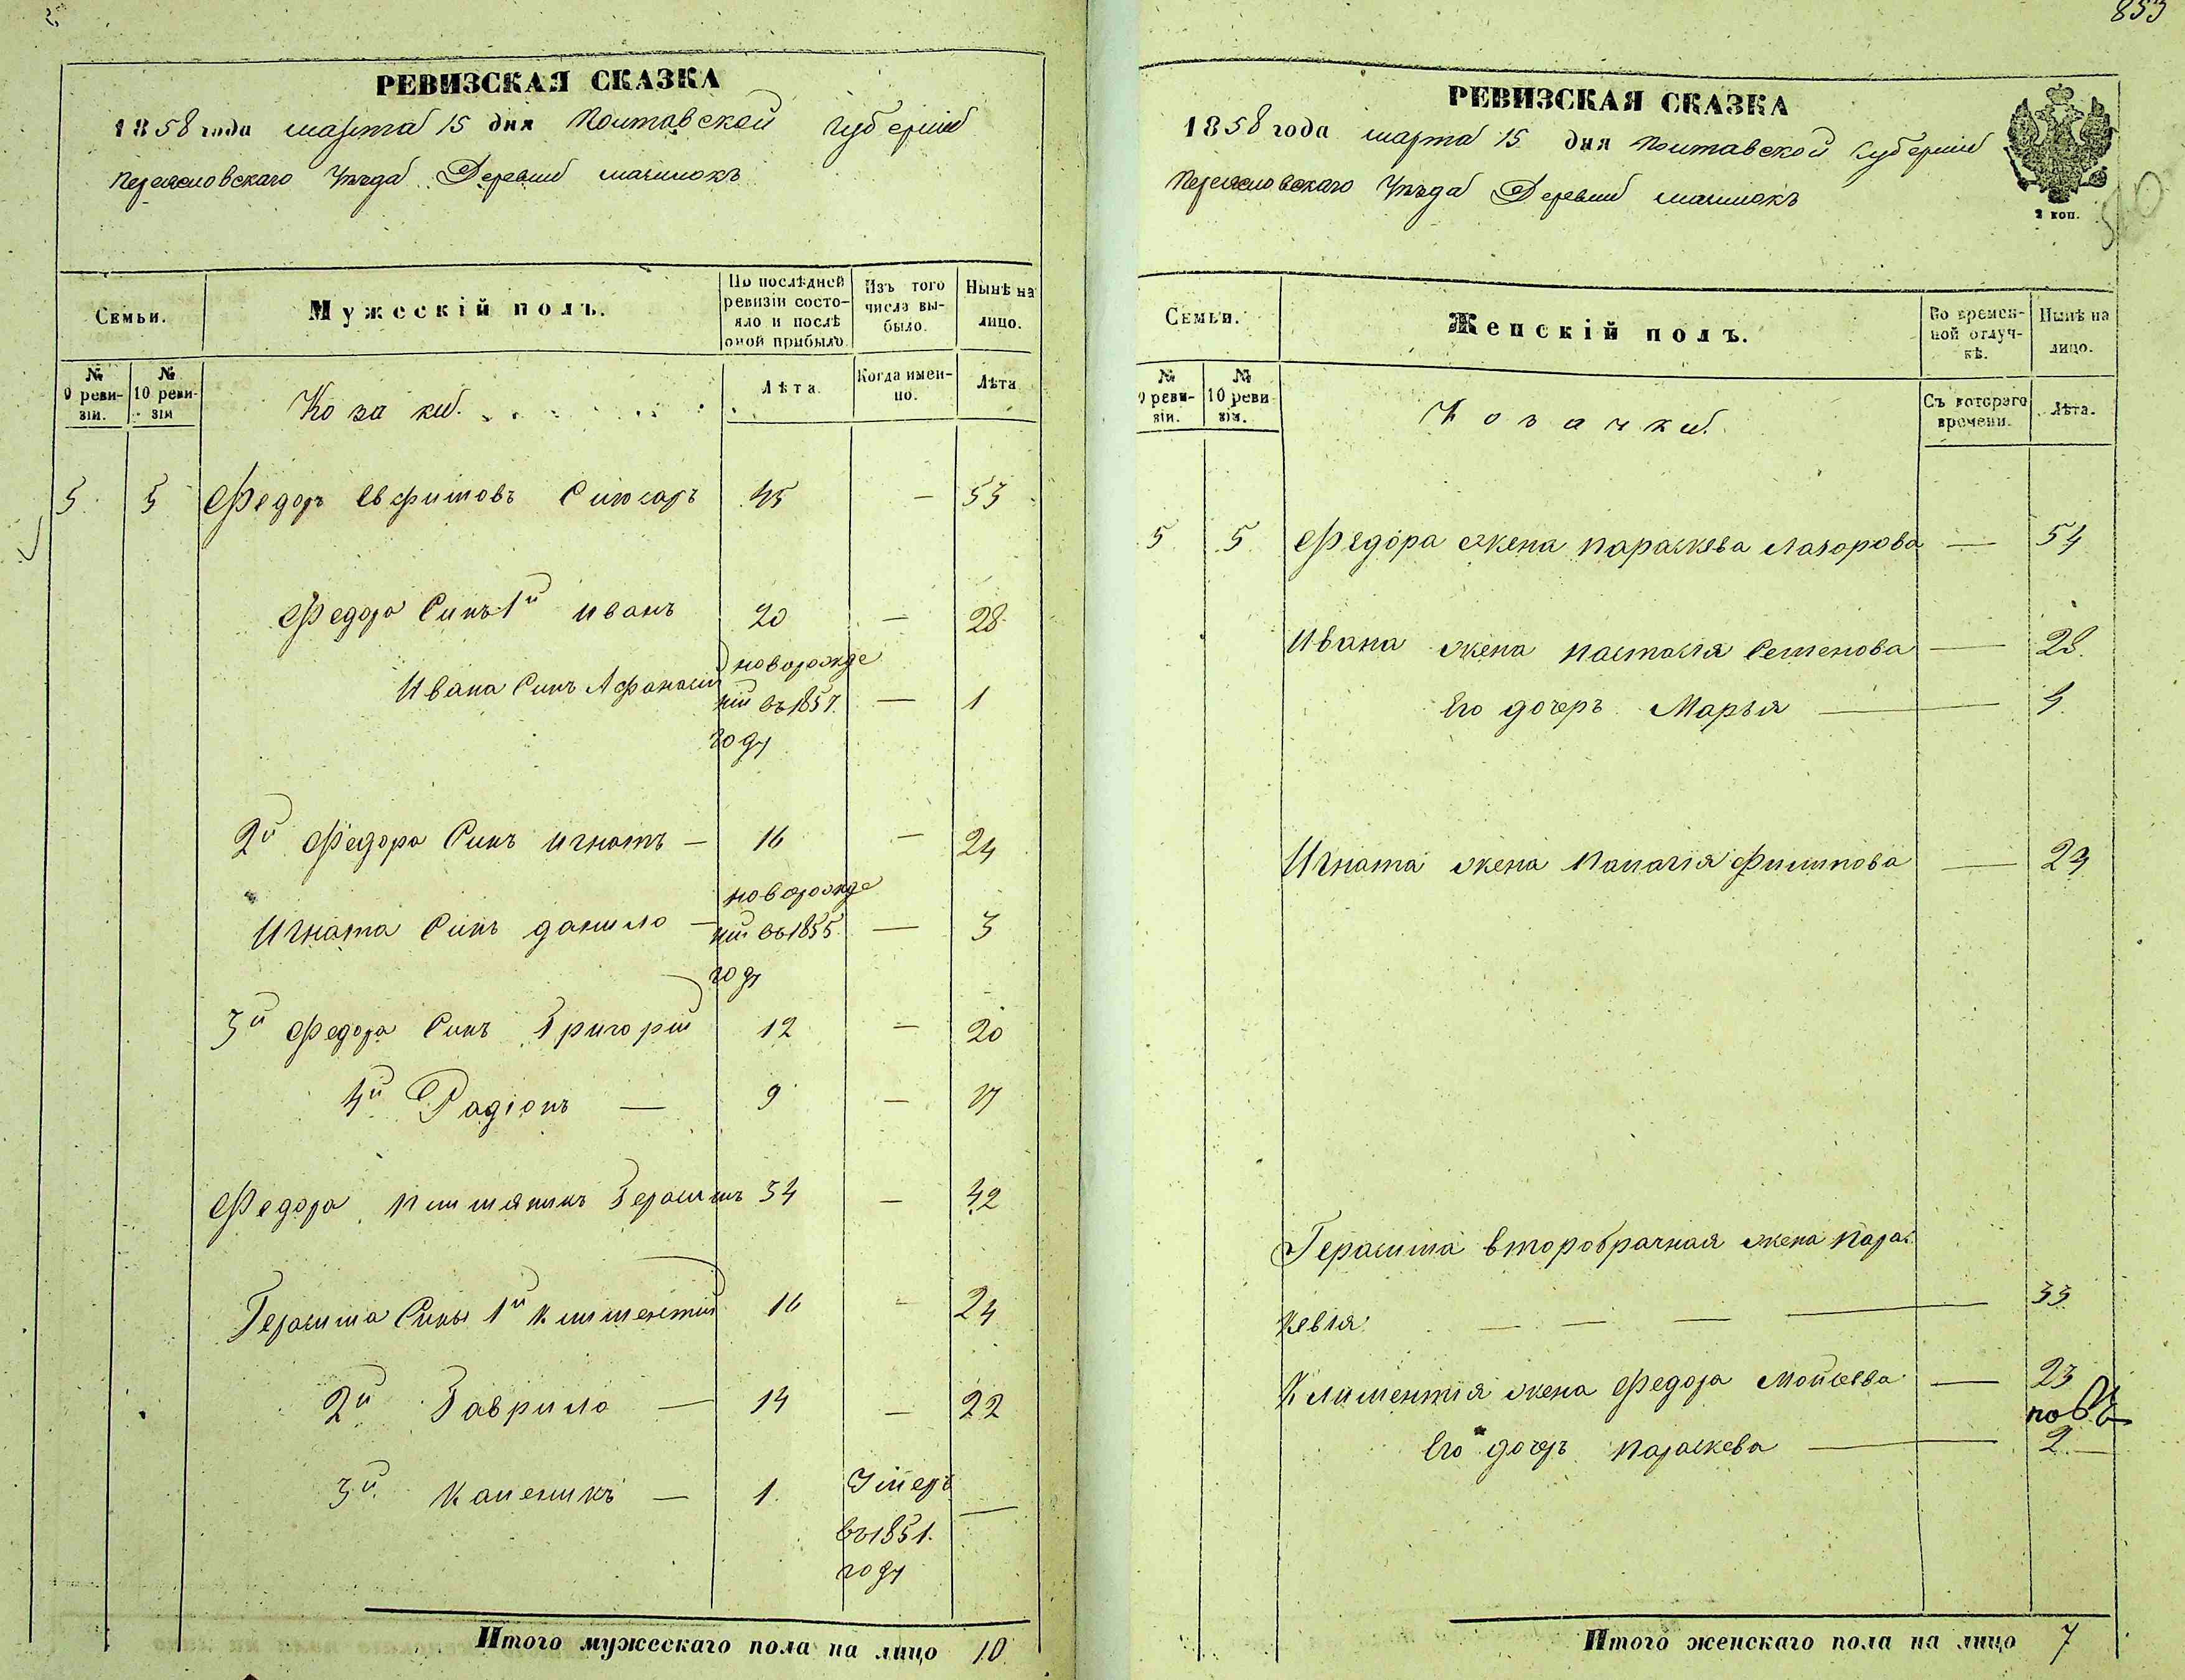 853
РЕВИЗСКАЯ СКАЗКА
1858 года марта 15 дня Полтавской Губерніи
Переясловскаго Уѣзда Деревни
Семьи.
Мужескій полъ.
По послѣдней ревизіи состояло и послѣ оной прибыло.
Изъ того числа выбыло.
Нынѣ на лицо.
№ 9 ревизіи.
№ 10 ревизіи
Козаки.
Лѣта
Когда именно.
Лѣта
5 5 Федоръ Евфимовъ Слюсаръ 45 — 53
Федора Синъ 1й Иванъ 20 — 28
Ивана Синъ Афанасій новорожденій въ 1857 году — 1
2й Федора Синъ Игнатъ — 16 — 24
Игната Синъ данило — новорожденій въ 1855 году — 3
3й Федора Синъ Григорій 12 — 20
4й Радіонъ — 9 — 17
Федора племяникъ Герасимъ 34 — 42
Герасима Сины 1й Климентій 16 — 24
2й Гаврило — 14 — 22
3й — 1 Умеръ въ 1851 году —
Итого мужескаго пола на лицо 10
РЕВИЗСКАЯ СКАЗКА
1858 года марта 15 дня Полтавской Губерніи
Переясловскаго Уѣзда Деревни
2 коп.
Семьи.
Женскій полъ.
Во временной отлучкѣ.
Нынѣ на лицо.
№ 9 ревизіи.
№ 10 ревизіи.
Козачки.
Съ котораго времени.
Лѣта.
5 5 Федора жена параскева Лазорова — 54
Ивана жена настасія Семенова — 28
Его дочеръ Марья — 4
Игната жена Палагія Филипова — 24
Герасима второбрачная жена Парас
кевія — — — — 33
Климентія жена Федора Мойсеева — 23
Его дочеръ параскева — 2
Итого женскаго пола на лицо 7